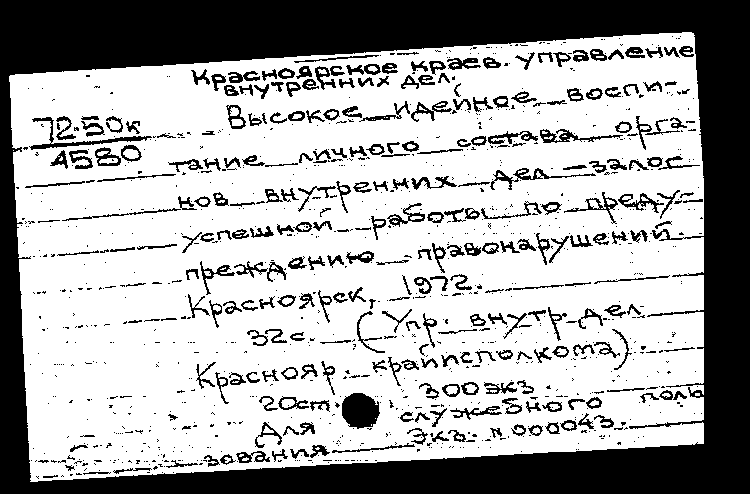 Красноярское краев. управление
внутренних дел.
72-50к
4580
Высокое идейное воспи-
тание личного состава орга-
нов внутренних дел — залог
успешной работы по преду-
преждению правонарушений.
Красноярск, 1972.
32с. (Упр. внутр. дел
Краснояр. крайисполкома).
20см. 300экз.
Для служебного поль
зования Экз. N 000043.